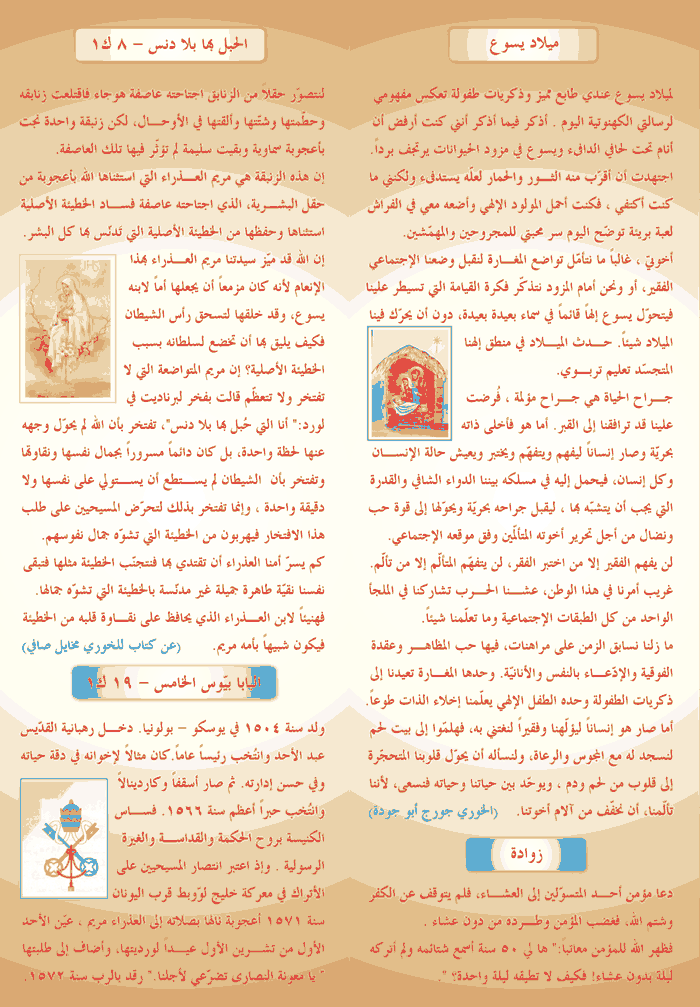 ميلاد يسوع
لميلاد يسوع عندي طابع مميز وذكريات طفولة تعكس مفهومي
لرسالتي الكهنوتية اليوم . أذكر فيما أذكر أنني كنت أرفض أن
أنام تحت لحافي الدافىء ويسوع في مزود الحيوانات يرتجف برداً.
اجتهدت أن أقرّب منه الثـور والحمار لعلّه يستدفىء ولكنني ما
كنت أكتفي ، فكنت أحمل المولود الإلهي وأضعه معي في الفراش
لعبة بريئة توضّح اليوم سر محبتي للمجروحين والمهمّشين.
أخوتيّ ، غالباً ما نتأمّل تواضع المغـارة لنقبل وضعنا الإجتماعي
الفقير، أو ونحن أمام المزود نتذكّر فكرة القيامة التي تسيطر علينا
فيتحوّل يسوع إلهاً قائماً في سماء بعيدة بعيدة، دون أن يحرّك فينا
الميلاد شيئاً. حـدث الميـلاد في منطق إلهنا
المتجسّد تعليم تربـوي.
جـراح الحياة هي جـراح مؤلمة ، فُرضت
علينا قد ترافقنا إلى القبر. أما هو فأخلى ذاته
بحريّة وصار إنساناً ليفهم ويتفهّم ويختبر ويعيش حالة الإنسـان
وكل إنسان، فيحمل إليه في مسلكه بيننا الدواء الشافي والقدرة
التي يجب أن يتشبّه بها ، ليقبل جراحه بحريّة ويحوّلها إلى قوة حب
ونضال من أجل تحرير أخوته المتألّمين وفق موقعه الإجتماعي.
لن يفهم الفقير إلا من اختبر الفقر، لن يتفهّم المتألّم إلا من تألّم.
غريب أمرنا في هذا الوطن، عشـنا الحـرب تشاركنا في الملجأ
الواحد من كل الطبقات الإجتماعية وما تعلّمنا شيئاً.
ما زلنا نسابق الزمن على مراهنات، فيها حب المظاهـر وعقدة
الفوقية والإدّعـاء بالنفس والأنانيّة. وحدها المغـارة تعيدنا إلى
ذكريات الطفولة وحده الطفل الإلهي يعلّمنا إخلاء الذات طوعاً.
أما صار هو إنساناً ليؤلّهنا وفقيراً لنغتني به، فهلمّوا إلى بيت لحم
لنسجد له مع المجوس والرعاة، ولنسأله أن يحوّل قلوبنا المتحجّرة
إلى قلوب من لحم ودم ، ويوحّد بين حياتنا وحياته فنسعى، لأننا
تألّمنا، أن نخفّف من آلام أخوتنا. (الخوري جورج أبو جودة)
زوادة
دعا مؤمن أحـد المتسوّلين إلى العشـاء، فلم يتوقف عن الكفر
وشتم الله، فغضب المؤمن وطـرده من دون عشاء .
فظهر الله للمؤمن معاتباً:" ها لي ٥٠ سنة أسمع شتائمه ولم أتركه
ليلة بدون عشاء! فكيف لا تطيقه ليلة واحدة؟ ".
الحبل بها بلا دنس – ٨ ك١
لنتصوّر حقلاً من الزنابق اجتاحته عاصفة هوجاء فاقتلعت زنابقه
وحطّمتها وشتّتها وألقتها في الأوحـال، لكن زنبقة واحدة نجت
بأعجوبة سماوية وبقيت سليمة لم تؤثّر فيها تلك العاصفة.
إن هذه الزنبقة هي مريم العـذراء التي استثناها الله بأعجوبة من
حقل البشـرية، الذي اجتاحته عاصفة فسـاد الخطيئة الأصلية
استثناها وحفظها من الخطيئة الأصلية التي تَدنّس بها كل البشر.
إن الله قد ميّز سيدتنا مريم العـذراء بهذا
الإنعام لأنه كان مزمعاً أن يجعلها أماً لابنه
يسوع، وقد خلقها لتسحق رأس الشيطان
فكيف يليق بها أن تخضع لسلطانه بسبب
الخطيئة الأصلية؟ إن مريم المتواضعة التي لا
تفتخر ولا تتعظّم قالت بفخر لبرناديت في
لورد:" أنا التي حُبل بها بلا دنس"، تفتخر بأن الله لم يحوّل وجهه
عنها لحظة واحدة، بل كان دائماً مسروراً بجمال نفسها ونقاوتها
وتفتخر بأن الشيطان لم يسـتطع أن يسـتولي على نفسها ولا
دقيقة واحدة ، وإنما تفتخر بذلك لتحرّض المسيحيين على طلب
هذا الافتخار فيهربون من الخطيئة التي تشوّه جمال نفوسهم.
كم يسرّ أمنا العذراء أن تقتدي بها فنتجنّب الخطيئة مثلها فتبقى
نفسنا نقيّة طاهرة جميلة غير مدنّسة بالخطيئة التي تشوّه جمالها.
فهنيئاً لابن العـذراء الذي يحافظ على نقـاوة قلبه من الخطيئة
فيكون شبيهاً بأمه مريم. (عن كتاب للخوري مخايل صافي)
البابا بيّوس الخامس – ١٩ ك١
ولد سنة ١٥٠٤ في يوسكو – بولونيا. دخـل رهبانية القدّيس
عبد الأحد وانتُخب رئيساً عاماً.كان مثالاً لإخوانه في دقة حياته
وفي حسن إدارته. ثم صار أسقفاً وكاردينالاً
وانتُخب حبراً أعظم سنة ١٥٦٦. فسـاس
الكنيسة بروح الحكمة والقداسـة والغيرة
الرسولية . وإذ اعتبر انتصار المسيحيين على
الأتراك في معركة خليج لوّوبط قرب اليونان
سنة ١٥٧١ أعجوبة نالها بصلاته إلى العذراء مريم ، عيّن الأحد
الأول من تشـرين الأول عيـداً لورديتها، وأضاف إلى طلبتها
" يا معونة النصارى تضرّعي لأجلنا." رقد بالرب سنة ١٥٧٢.